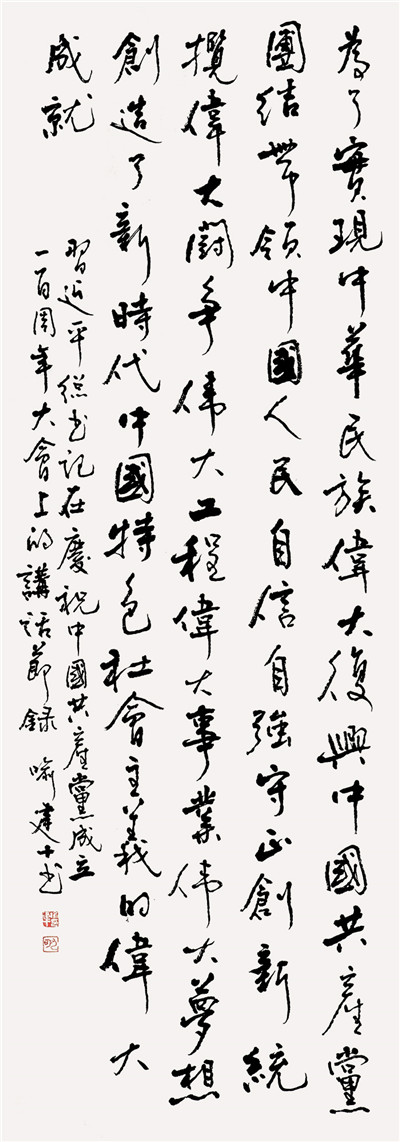 為了實現中華民族偉大復興中國共產黨
團結帶領中國人民自信自強守正創新統
攬偉大鬭争伟大工程偉大事業伟大夢想
創造了新時代中國特色社會主義的偉大
成就
習近平總书記在慶祝中國共產黨成立
一百周年大會上的講話節録 喻建十书